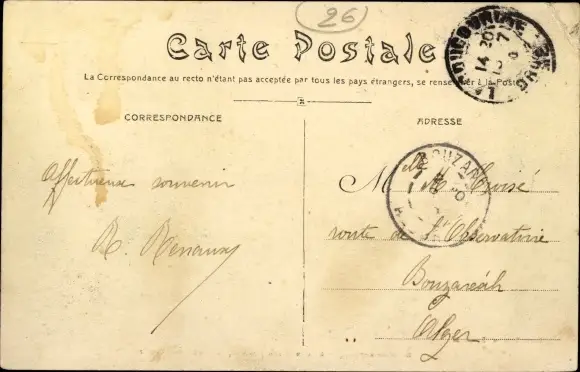 26
Carte Postale
La Correspondance au recto n'étant pas acceptée par tous les pays étrangers, se renseigner à la Poste
CORRESPONDANCE
ADRESSE
Affectueux souvenir
R. Renaux
Melle M. Croisé
route de l'Observatoire
Bouzaréah
Alger
BOUZAR
14 20